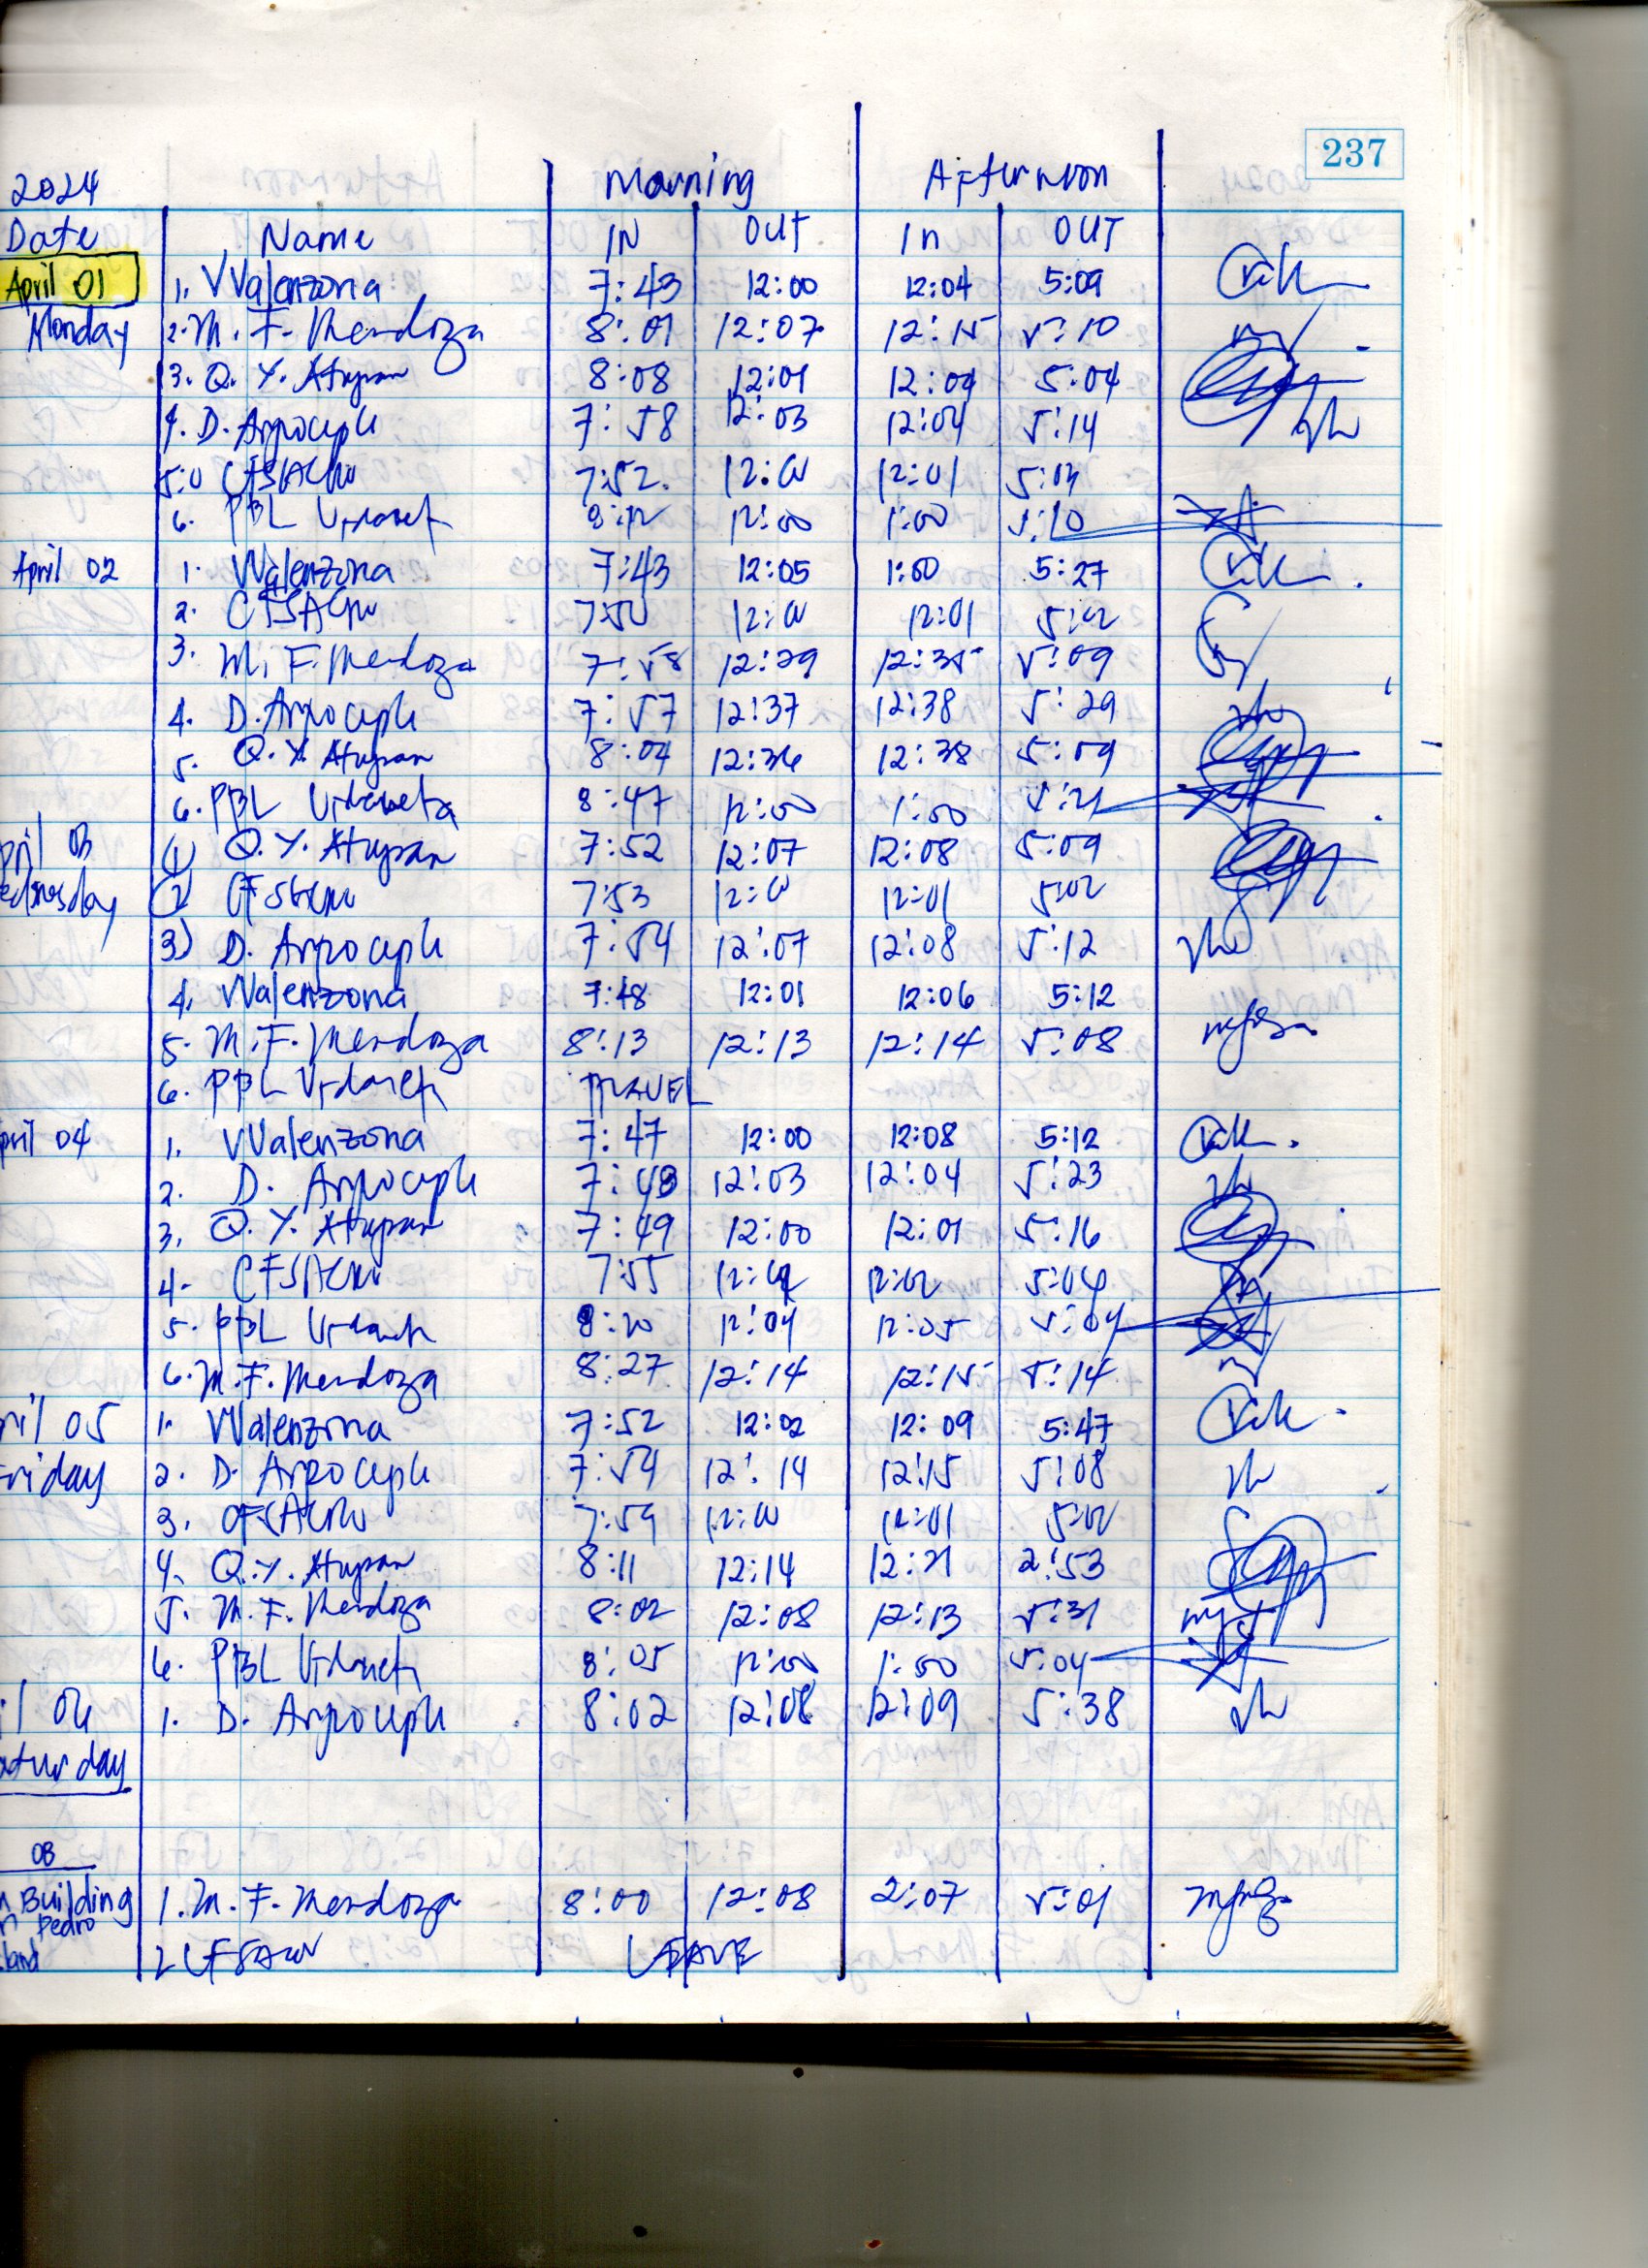 237
2024 Morning Afternoon
Date Name IN OUT In OUT
April 01 1. VValenzona 7:43 12:00 12:04 5:09
Monday 2. M. F. Mendoza 8:01 12:07 12:15 5:10
3. Q. Y. Atupan 8:08 12:01 12:04 5:04
4. D. Arpoceple 7:58 12:03 12:04 5:14
5. 7:52 12:00 12:01 5:04
6. PBL 12:00 1:00 5:10
April 02 1. VValenzona 7:43 12:05 1:00 5:27
2. 7:50 12:00 12:01 5:02
3. M. F. Mendoza 7:58 12:29 12:35 5:09
4. D. Arpoceple 7:57 12:37 12:38 5:29
5. Q. Y. Atupan 8:04 12:36 12:38 5:09
6. PBL 8:47 12:00 1:00 5:21
pril 03 1 Q. Y. Atupan 7:52 12:07 12:08 5:09
ednesday 2 7:53 12:00 12:01 5:02
3) D. Arpoceple 7:54 12:07 12:08 5:12
4. VValenzona 7:48 12:01 12:06 5:12
5. M. F. Mendoza 8:13 12:13 12:14 5:08
6. PBL TRAVEL
pril 04 1. VValenzona 7:47 12:00 12:08 5:12
2. D. Arpoceple 7:48 12:03 12:04 5:23
3. Q. Y. Atupan 7:49 12:00 12:01 5:16
4. 7:55 12:02 5:06
5. PBL 8:20 12:04 12:05 5:04
6. M. F. Mendoza 8:27 12:14 12:15 5:14
ril 05 1. VValenzona 7:52 12:02 12:09 5:47
Friday 2. D. Arpoceple 7:54 12:14 12:15 5:08
3. 7:59 12:00 12:01 5:02
4. Q. Y. Atupan 8:11 12:14 12:21 2:53
5. M. F. Mendoza 8:02 12:08 12:13 5:31
6. PBL 8:05 12:00 1:00 5:04
il 06 1. D. Arpoceple 8:02 12:08 12:09 5:38
aturday
08
Building 1. M. F. Mendoza 8:00 12:08 2:07 5:01
Pedro
land 2 LEAVE